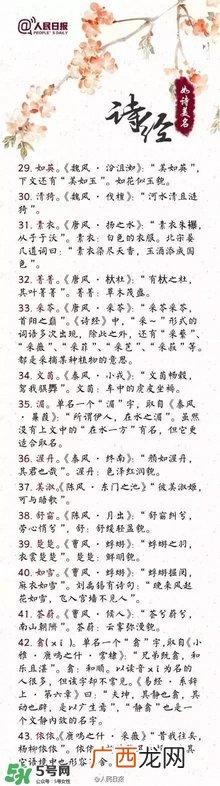 人民日报
PEOPLE'S DAILY
如诗美名
诗经
29. 如英。《魏风·汾沮洳》：“美如英”，
下文还有“美如玉”。如花似玉貌。
30. 清猗。《魏风·伐檀》：“河水清且涟
猗”。
31. 素衣。《唐风·扬之水》：“素衣朱襮，
从子于沃”。素衣：白色的衣服。北宋晏
几道词曰：“素衣染尽天香，玉酒添成国
色”。
32. 菁菁。《唐风·杕杜》：“有杕之杜，
其叶菁菁”。菁菁：草木茂盛。
33. 采苓。《唐风·采苓》：“采苓采苓，
首阳之巅”。《诗经》中，“采~”形式的
词语多次出现，除此之外，还有“采蘩”、
“采薇”、“采苜”、“采芑”、“采菽”等。
都是采摘某种植物的意思。
34. 文茵。《秦风·小戎》：“文茵畅毂，
驾我骐馵”。文茵：车中的虎皮坐褥。
35. 湄。单名一个“湄”字，取自《秦风
·蒹葭》：“所谓伊人，在水之湄”。虽然
没有上文中的“在水一方”有名，但它更
适合取名。
36. 渥丹。《秦风·终南》：“颜如渥丹，
其君也哉”。渥丹：色泽红润貌。
37. 美淑。《陈风·东门之池》：“彼美淑姬，
可与晤歌”。
38. 舒窈。《陈风·月出》：“舒窈纠兮，
劳心悄兮”，舒：舒缓轻盈貌。
39. 楚楚。《曹风·蜉蝣》：“蜉蝣之羽，
衣裳楚楚”。楚楚：鲜明貌。
40. 如雪。《曹风·蜉蝣》：“蜉蝣掘阅，
麻衣如雪”。刘禹锡有诗句：“晚来风起
花如雪，飞入宫墙不见人”。
41. 荟蔚。《曹风·候人》：“荟兮蔚兮，
南山朝隮”。荟蔚：云雾弥漫貌。
42. 翕（xī）。单名一个“翕”字，取自《小
雅·鹿鸣之什·常棣》：“兄弟既翕，和
乐且湛”。翕：和顺。以读音xi为名的人
很多，但该字却不常见。《易经·系辞
上·第六章》曰：“夫坤，其静也翕，其
动也辟，是以广生焉”，“静翕”也是一
个文静内敛的名字。
43. 依依。《鹿鸣之什·采薇》“昔我往矣，
杨柳依依”。依依
5号网
www.5h.com
@人民日报
广西龙网